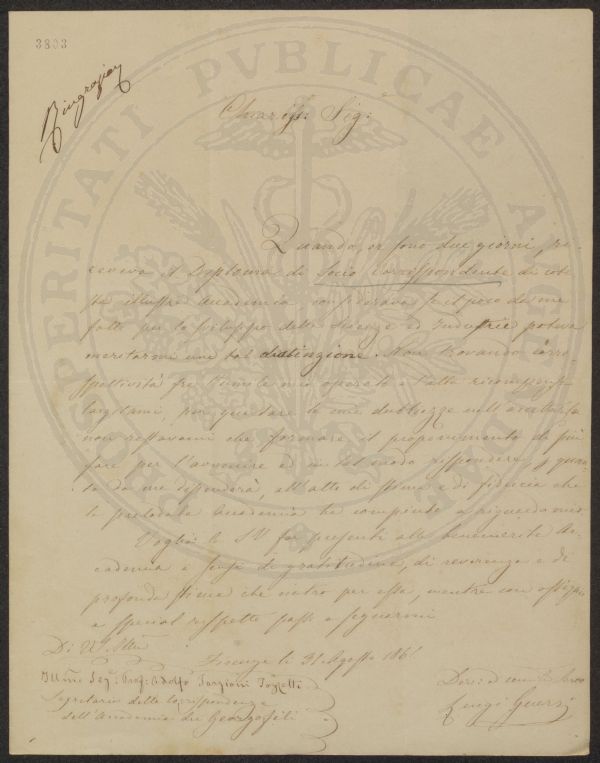 3803
Chiariss: Sig:
Quando, or sono due giorni, ri-
ceveva il Diploma di Socio Corrispondente di cote-
sta illustre Accademia considerava se il poco da me
fatto per lo sviluppo delle Scienze ed Industrie poteva
meritarmi una tal distinzione. Non trovando corri-
spettività fra l'umile mio operato e l'alta ricompensa
largitami, per quietare le mie dubbiezze nell'accettarla
non restavami che formare il proponimento di più
fare per l'avvenire ed in tal modo rispondere, p quan-
to da me dipenderà, all'atto di stima e di fiducia che
la prelodata Accademia ha compiuto a riguardo mio.
Voglia la S V far presenti alla benemerita Ac-
cademia i sensi di gratitudine, di reverenza e di
profonda stima che nutro per essa, mentre con
e special rispetto passo a segnarmi
Di V. S. Illma
Firenze li 31 Agosto 186
Illmo Sig: Prof: Adolfo Targioni Tozzetti
Segretario delle Corrispondenze
dell'Accademia dei Georgofili
Luigi Guerri
PROSPERITATI PVBLICAE AVGENDAE